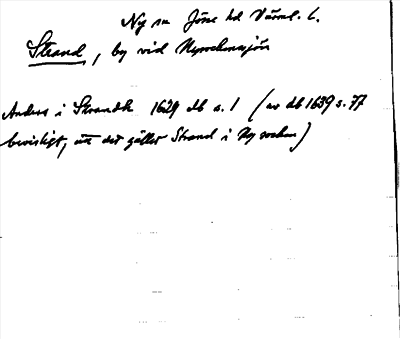 Ny sn Jöse hd Värml. l.
Strand, by vid Nysockensjön
Anders i Strandh 1629 db s. 1 (av db 1639 s. 77
bevisligt, att det gäller Strand i Ny socken)